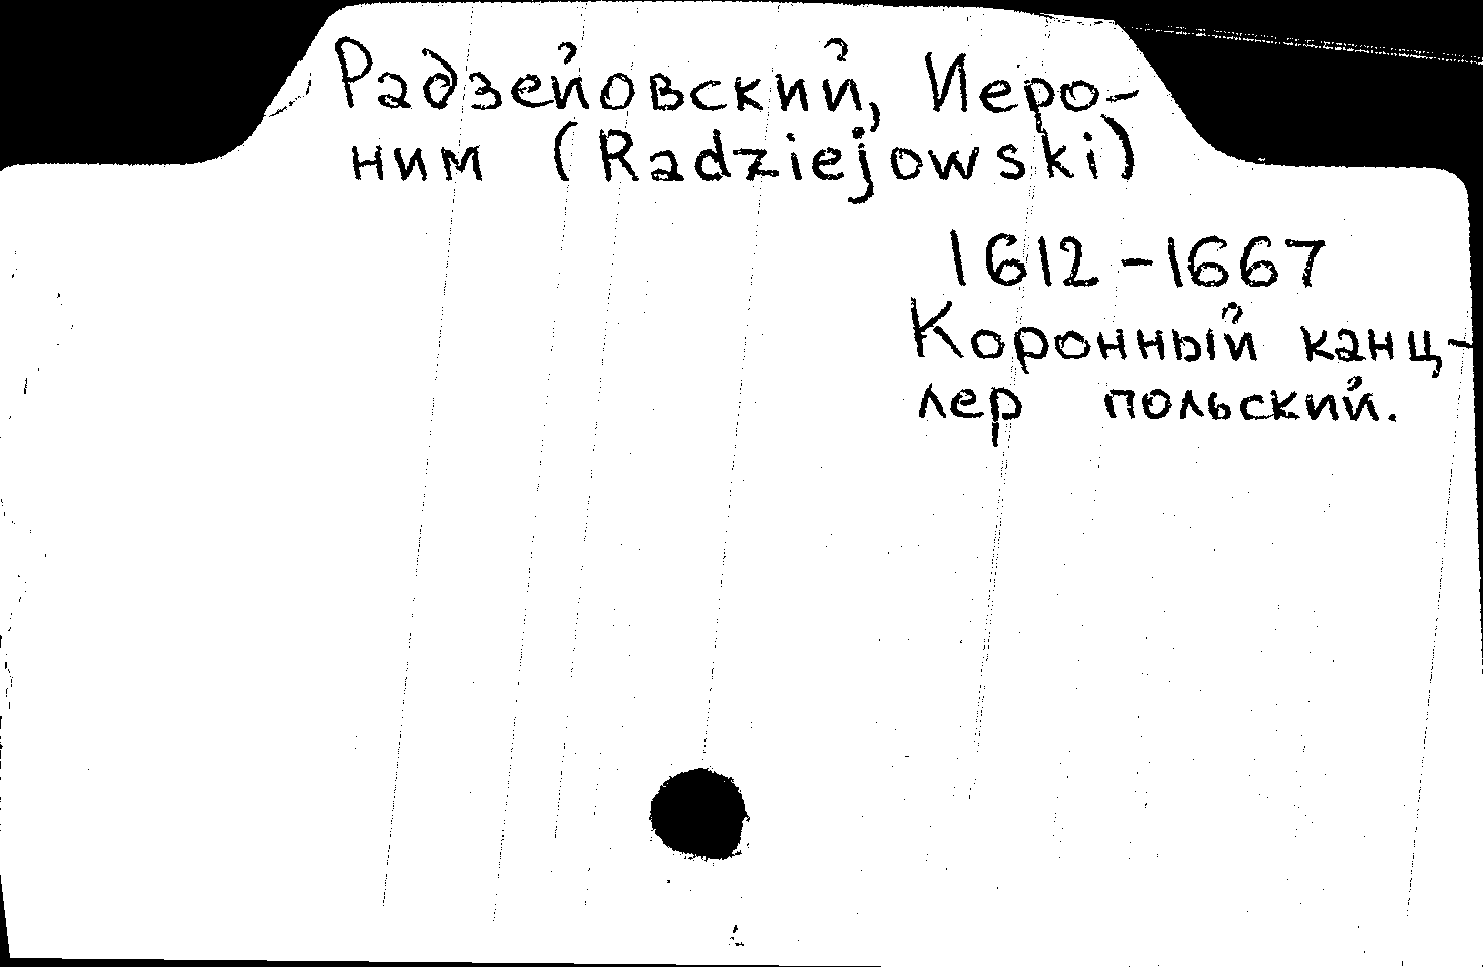 Радзейовский, Иеро-
ним (Radziejowski)
1612-1667
Коронный канц-
лер польский.